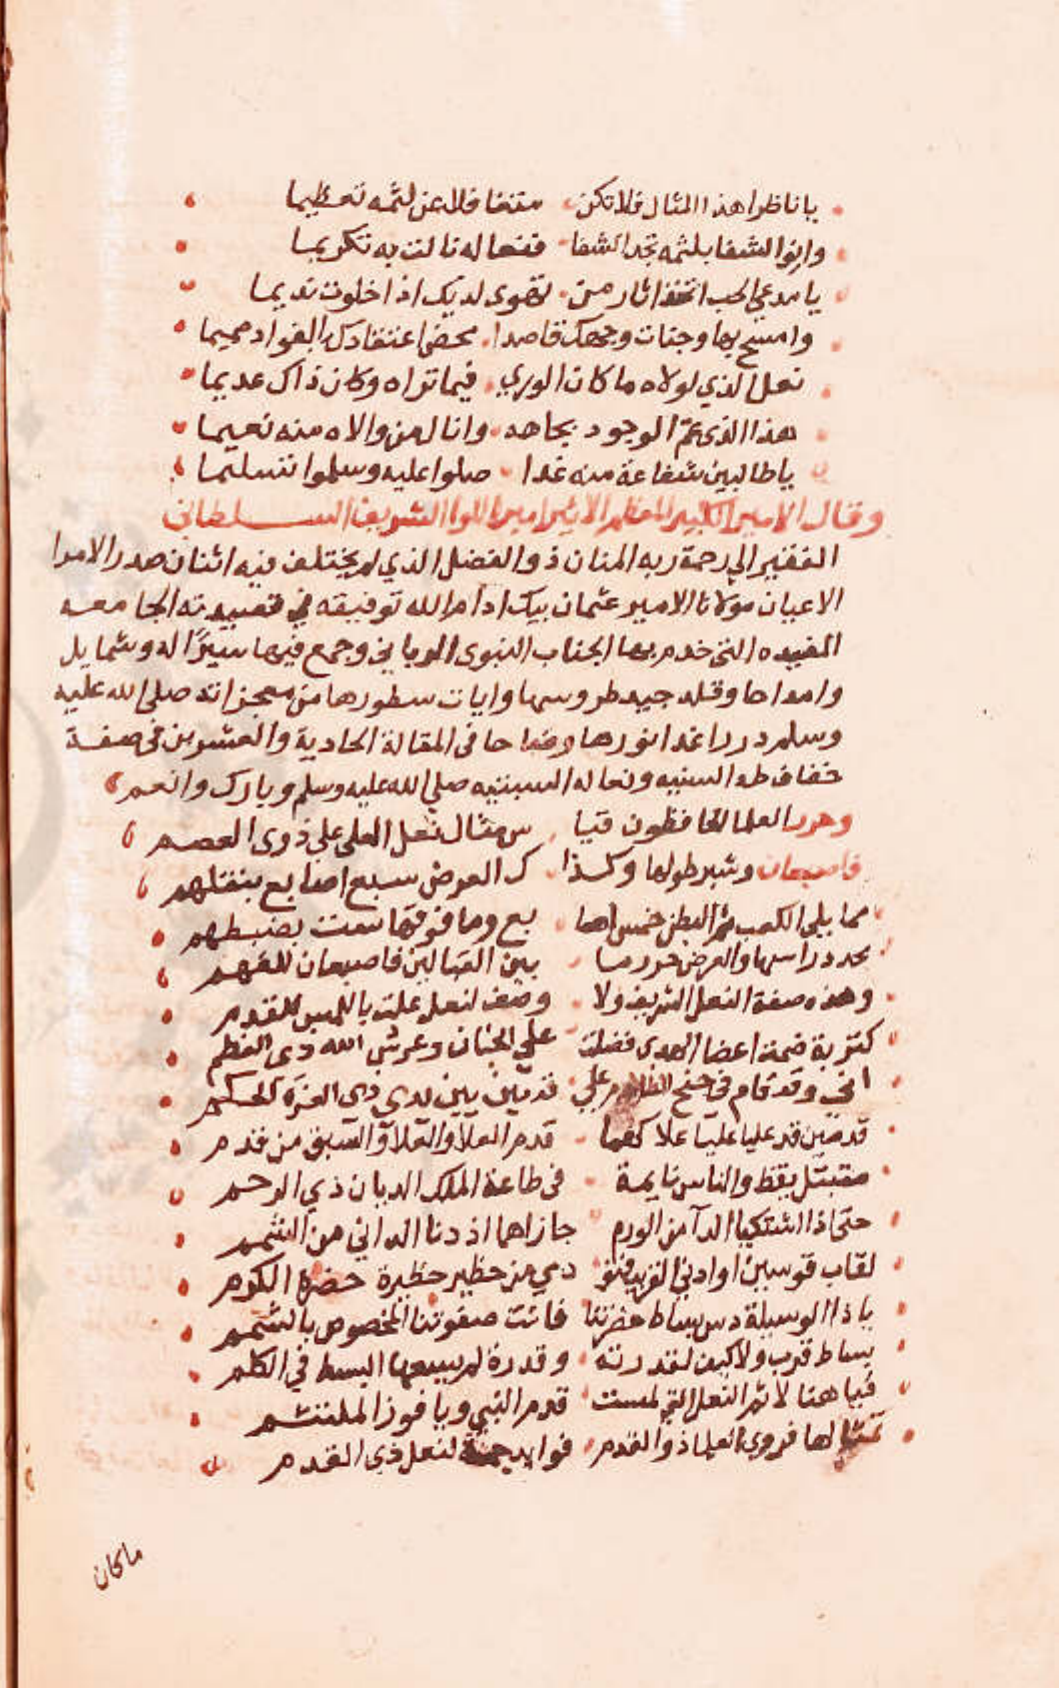 ياناظرا هذا المثال فلا تكن متغافلا عن لثمه تعظيما
وانوا الشفا بلثمه تجد الشفا فنعاله نالت به تكريما
يا مدعي الحب اتخذ اثار من تقوى لديك اذا خلوت نديما
وامسح بها وجنات وجهك قاصدا محض اعتقادك بالفواد صميما
نعل الذي لولاه ما كان الوري فيما تراه وكان ذاك عديما
هذا الذى عم الوجود بجاهه وانال من والاه منه نعيما
ياطالبين شفاعة منه غدا صلوا عليه وسلموا تسليما
وقال الامير الكبير المعظم الاثير امير اللوا الشريف السلطاني
الفقير الي رحمة ربه المنان ذو الفضل الذي لم يختلف فيه اثنان صدر الامرا
الاعيان مولانا الامير عثمان بيك ادام الله توفيقه في قصيدته الجامعه
المفيده التى خدم بها الجناب النبوى الرباني وجمع فيها سيرًا له وشمايل
وامداحا وقلد جيد طروسها وايات سطورها من معجزاته صلى الله عليه
وسلم دررا غدا نورها وضاحا فى المقالة الحادية والعشرين فى صفة
خفاف طه السنيه ونعاله السبتيه صلي الله عليه وسلم وبارك وانعم
وحرر العلما الحافظون قيا س مثال نعل العلى على ذوى العصم
فاصبعان وشبر طولها وكذا ك العرض سبع اصابع بنقلهم
مما يلى الكعب ثم البطن خمس اصا بع وما فوقها ستت بضبطهم
محدد راسها والعرض حرر ما بين القبالين فاصبعان للفهم
وهذه صفة النعل الشريف ولا وصف لنعل علت باللمس للقدم
كتربة ضمة اعضا الهدى فضلت علي الجنان وعرش الله ذى العظم
انى وقد قام فى جنح الظلام على قدمين بين يدي ذى العزة الحكم
قدمين قد عليا عليا علا كعبا قدم العلا والعلا والسبق من قدم
مقبتل يقظ والناس نايمة فى طاعة الملك الديان ذي الرحم
حتى اذا اشتكيا الدآ من الورم جازاهما اذ دنا الدانى من الشمم
لقاب قوسين او ادنى القريب فنو دي من حظير حظيرة حضرة الكرم
ياذا الوسيلة دس بساط حضرتنا فانت صفوتنا المخصوص بالشمم
بساط قرب ولا كيف لقدرته وقدرة لم يسعها البسط في الكلم
فيا هنا لاثم النعل التى لمست قدم النبي ويا فوز الملتثم
تمثالها فروى العلما ذو القدم فوايد جمة لنعل ذى القدم
ماكان